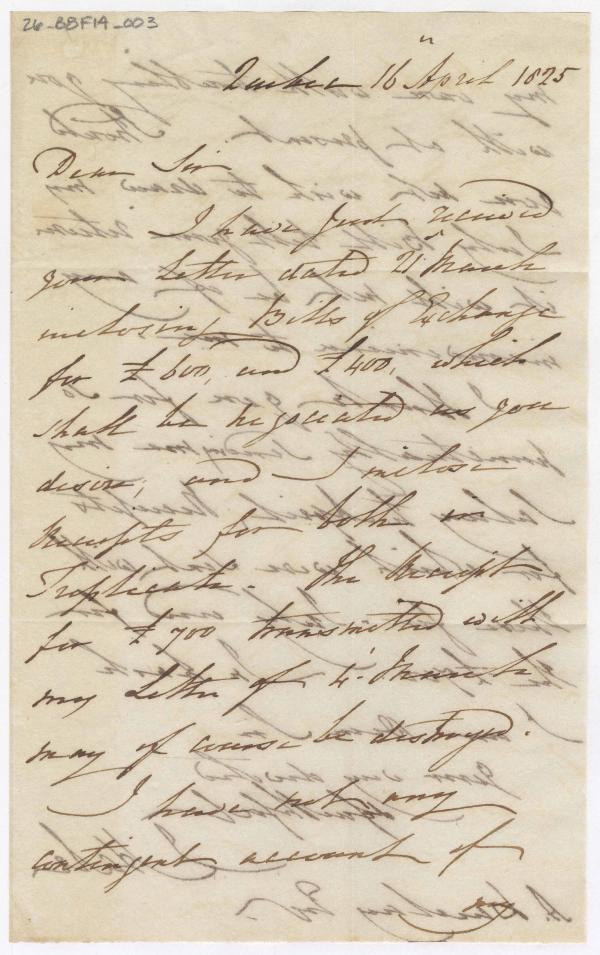 26-BBF14-003
Quebec 16" April 1825
Dear Sir
I have just received
your Letter dated 21" March
inclosing Bills of Exchange
for £600, and £400, which
shall be negociated as you
desire; and I inclose
Receipts for both in
Triplicate. The Receipt
for £700 transmitted with
my Letter of 4' March
may of course be destroyed.
I have not any
contingent account of
my